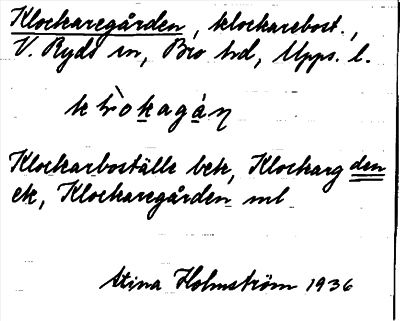 Klockaregården, klockarebost.,
V. Ryds sn, Bro hd, Upps. l.
klòkagáɳ
Klockarboställe bek, Klockarg den
ek, Klockaregården ml
Stina Holmström 1936